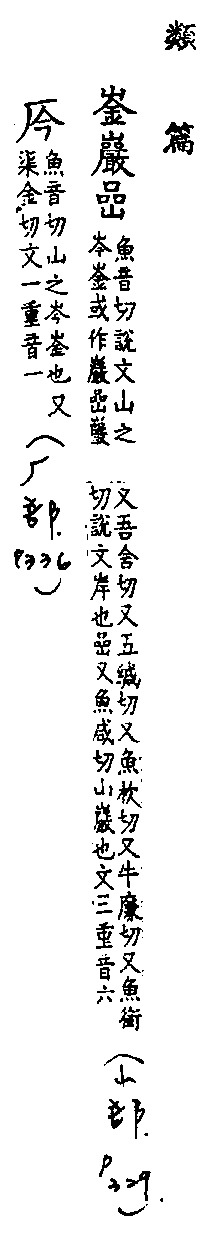 類篇
崟巖嵒
魚音切說文山之
岑崟或作巖嵒
又吾含切又五緘切又魚枕切又牛廉切又魚銜
切說文岸也嵒又魚咸切山巖也文三重音六
(山部.
P329.)
魚音切山之岑崟也又
渠金切文一重音一
(厂部.
P336)